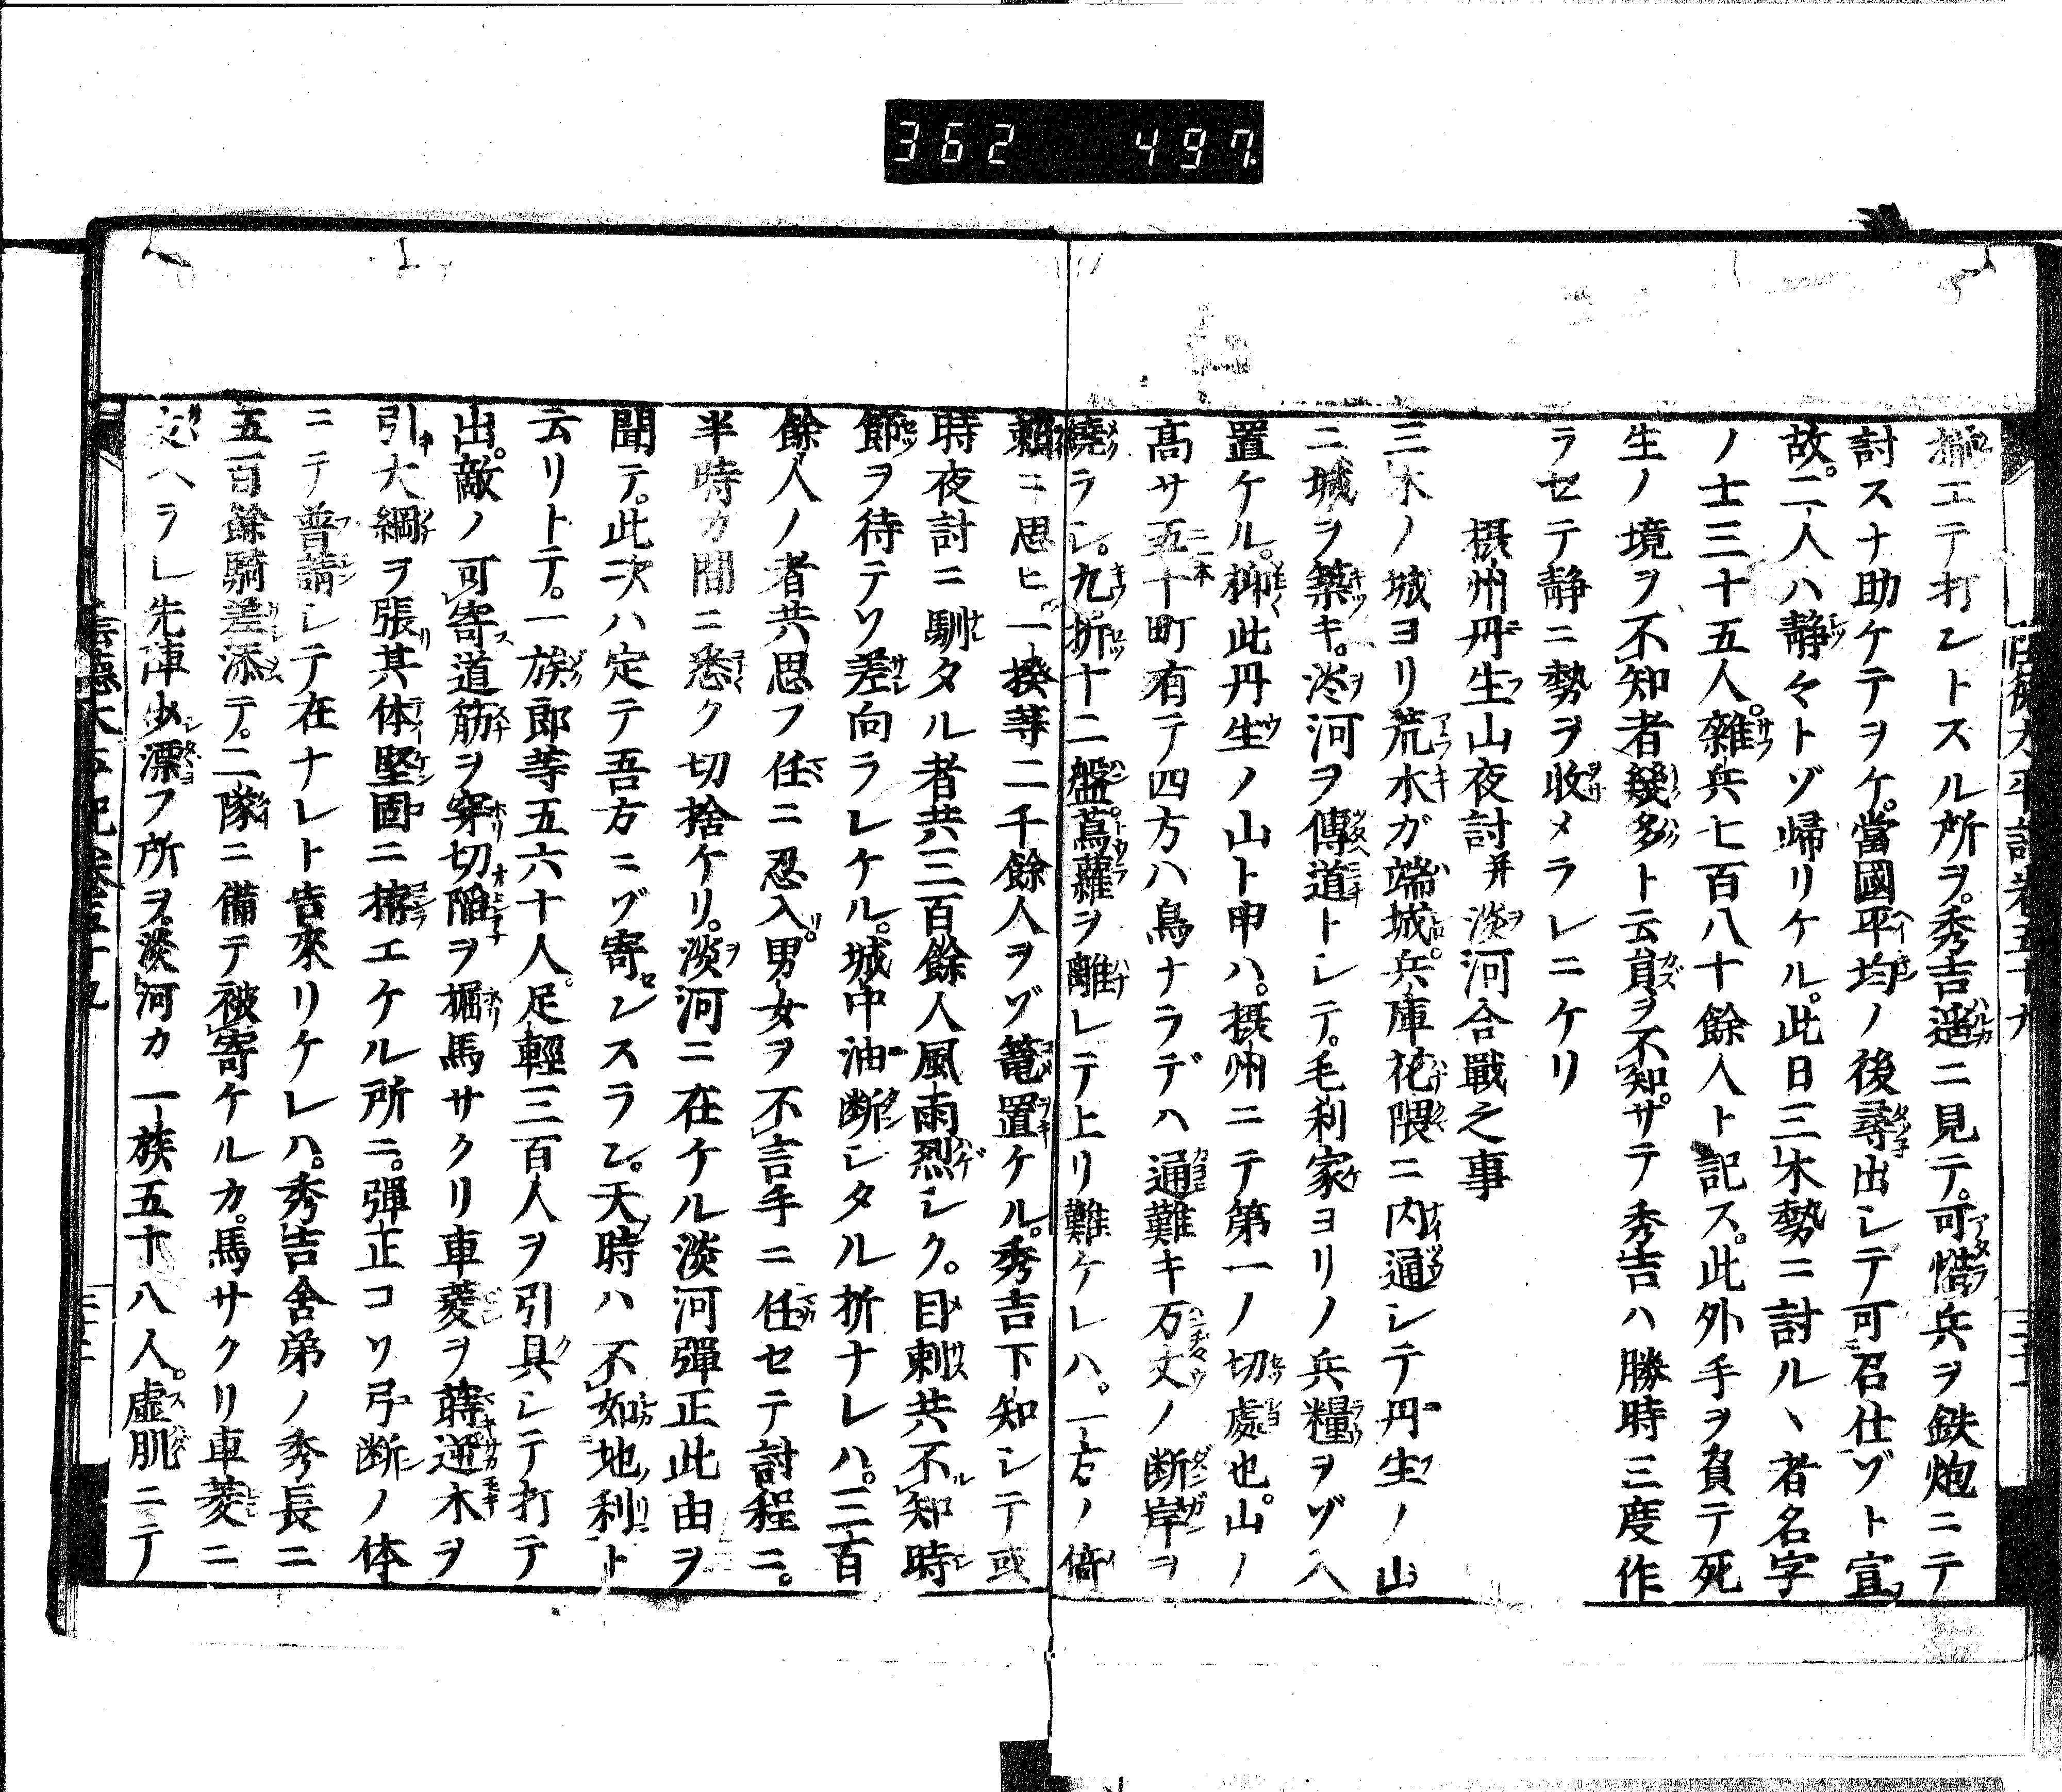 362 497
揃エテ打レトスル所ヲ。秀吉遥ニ見テ。可惜兵ヲ鉄炮ニテ
討スナ助ケテヲケ。當國平均ノ後尋出レテ可召仕ゾト宣
故。二人ハ静々トゾ帰リケル。此日三木勢ニ討ルヽ者名字
ノ士三十五人。雜兵七百八十餘人ト記ス。此外手ヲ負テ死
生ノ境ヲ不知者幾多ト云員ヲ不知。サテ秀吉ハ勝時三度作
ラセテ静ニ勢ヲ收メラレニケリ
摂州丹生山夜討并淡河合戰之事
三木ノ城ヨリ荒木ガ端城。兵庫花隈ニ内通シテ丹生ノ山
ニ城ヲ築キ。淡河ヲ傳道トレテ。毛利家ヨリノ兵糧ヲゾ入
置ケル。抑此丹生ノ山ト申ハ。摂州ニテ第一ノ切處也。山ノ
高サ五十町有テ四方ハ鳥ナラデハ通難キ万丈ノ断岸ヲ
繞ラシ。九折十二盤蔦蘿ヲ離レテ上リ難ケレハ。一方ノ
頼ニ思ヒ。一揆等二千餘人ヲゾ篭置ケル。秀吉下知シテ或
時夜討ニ馴タル者共三百餘人風雨烈シク。目刺共不知時
節ヲ待テソ差向ラレケル。城中油断シタル折ナレハ。三百
餘人ノ者共思フ任ニ忍入。男女ヲ不言手ニ任セテ討程ニ。
半時カ間ニ悉ク切捨ケリ。淡河ニ在ケル淡河彈正此由ヲ
聞テ。此次ハ定テ吾方ニゾ寄レスラン。天時ハ不如地利ト
云リトテ。一族郎等五六十人。足輕三百人ヲ引具レテ打テ
出。敵ノ可寄道筋ヲ穿切陥ヲ堀馬サクリ車菱ヲ蒔逆木ヲ
引大綱ヲ張其体堅固ニ拵エケル所ニ。彈正コソ弓断ノ体
ニテ普請レテ在ナレト告來リケレハ。秀吉舎弟ノ秀長ニ
五百餘騎差添テ。二隊ニ備テ被寄ケルカ。馬サクリ車菱ニ
支ヘラレ先陣少漂フ所ヲ。淡河カ一族五十八人。虚肌ニテ